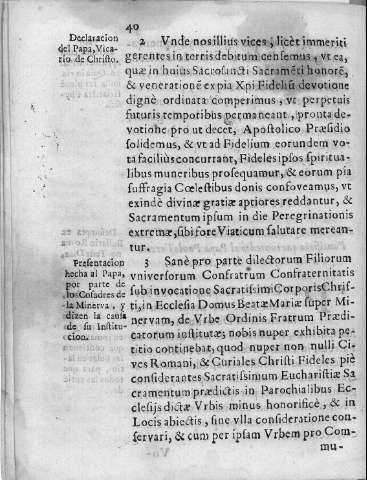 40
Declaracion
del Papa, Vica-
rio de Christo.
2 Vnde nos illius vices, licèt immeriti
gerentes in terris debitum censemus, vt ea,
quæ in huius Sacrosancti Sacramẽti honorẽ,
& venerationẽ ex pia Xpi Fidelium devotione
dignè ordinata comperimus, vt perpetuis
futuris temporibus permaneant, pronta de-
votione pro ut decet, Apostolico Præsidio
solidemus, & vt ad Fidelium eorundem vo-
ta facilius concurrant, Fideles ipsos spiritua-
libus muneribus prosequamur, & eorum pia
suffragia Cœlestibus donis confoveamus, vt
exindè divinæ gratiæ aptiores reddantur, &
Sacramentum ipsum in die Peregrinationis
extremæ, sibi fore Viaticum salutare merean-
tur.
Presentacion
hecha al Papa,
por parte de
los Cofadres de
la Minerva, y
dizen la causa
de su Institu-
cion.
3 Sanè pro parte dilectorum Filiorum
vniversorum Confratrum Confraternitatis
sub invocatione Sacratissimi Corporis Chris-
ti, in Ecclesia Domus Beatæ Mariæ super Mi-
nervam, de Vrbe Ordinis Fratrum Prædi-
catorum institutæ; nobis nuper exhibita pe-
titio continebat, quod nuper non nulli Ci-
ves Romani, & Curiales Christi Fideles piè
considerantes Sacratissimum Eucharistiæ Sa-
cramentum prædictis in Parochialibus Ec-
clesijs dictæ Vrbis minus honorificè, & in
Locis abiectis, sine vlla consideratione con-
servari, & cum per ipsam Vrbem pro Com-
mu-